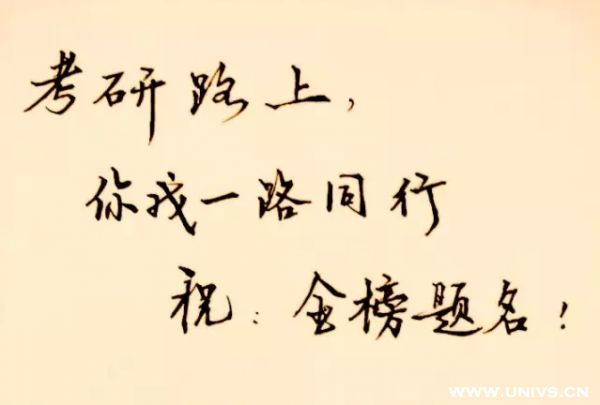 考研路上，
你我一路同行
祝：金榜题名！
WWW.UNIVS.CN